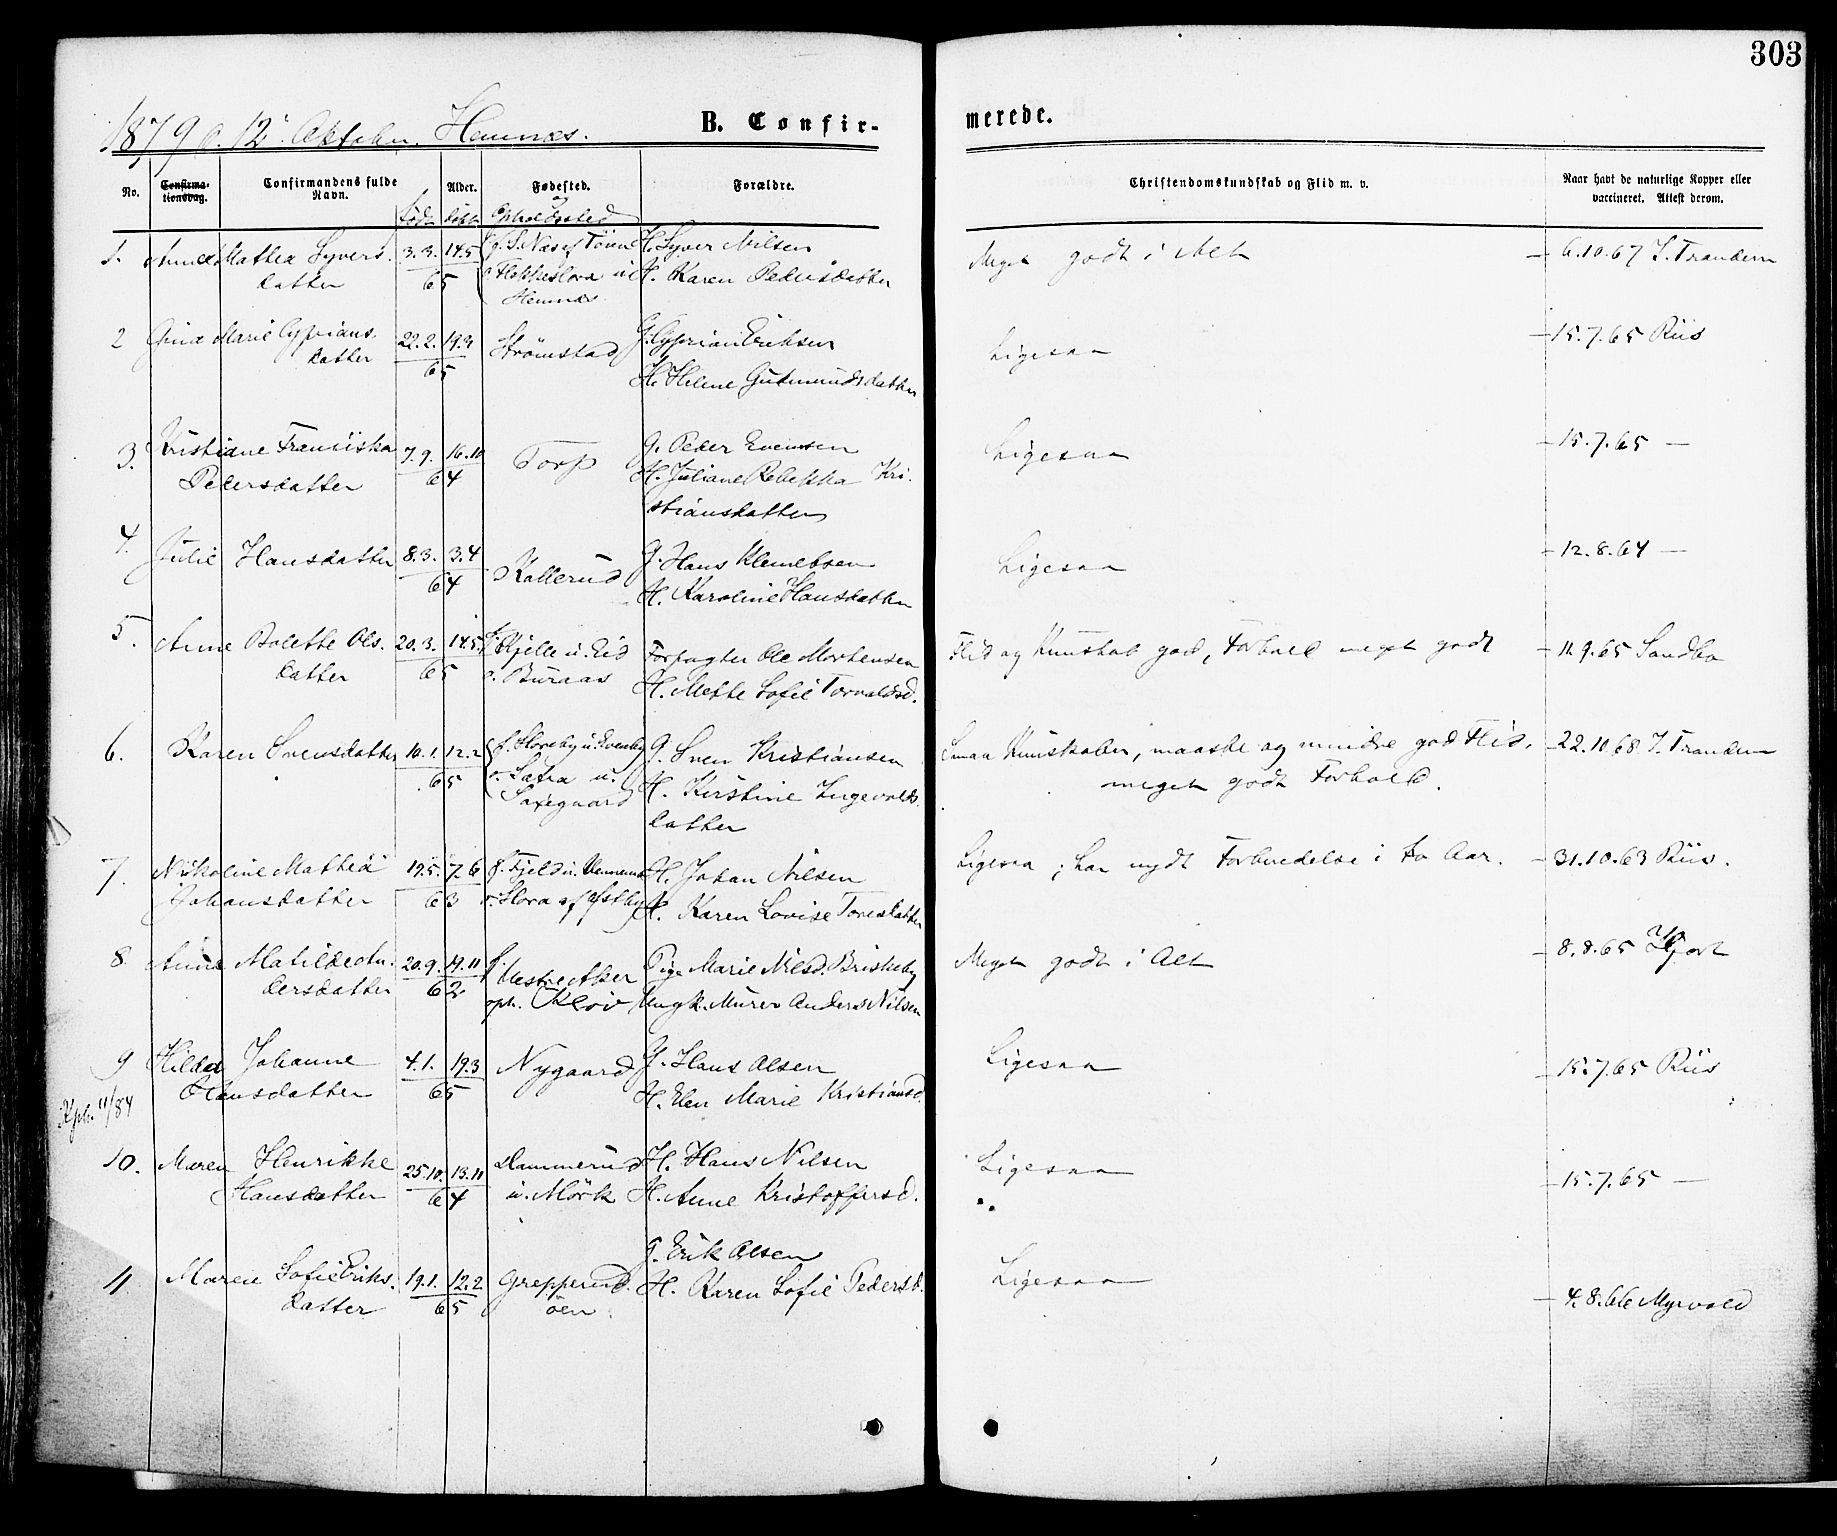 303
1879 d. 12 Oktober. Hemnæs. B. Confir-
merede.
No.
Confirma-
tionsdag.
Confirmandens fulde
Navn.
Alder.
født døbt
Fødested.
og
Opholdssted
Forældre.
Christendomskundskab og Flid m. v.
Naar havt de naturlige Kopper eller
vaccineret. Attest derom.
1. Anne Mathea Syvers- 3.3. 14.5 f. S. Næs af Toien H. Syver Nilsen Meget godt i Alt - 6.10.67 I. Trandem
datter 65 H. Karen Pedersdatter
Hemnæs
2 Gina Marie Cyprians- 22.2. 19.3 Strømstad G. Cyprian Eriksen Ligesaa - 15.7.65 Riis
datter 65 H. Helene Gudmundsdatter
3. Kristiane Fransiska 7.9. 16.10 Torp G. Peder Evensen Ligesaa - 15.7.65 —
Pedersdatter 64 H. Juliane Rebekka Kri-
stiansdatter
4. Julie Hansdatter 8.3. 3.4 Kallerud G. Hans Klemetsen Ligesaa - 12.8.64 —
64 H. Karoline Hansdatter
5. Anne Bolette Ols- 20.3. 14.5 f. Kjelle u. Eid Forpagter Ole Mortensen Flid og Kunskab god, Forhold meget godt - 11.9.65 Sandbo
datter 65 o. Buraas H. Mette Sofie Torvaldsd.
6. Karen Svensdatter 10.1. 12.2 f. Sloreby u. Evenby G. Sven Kristiansen Smaa Kunskaber, maaske og mindre god Flid, - 22.10.68 I. Trandem
65 o. Latra u. H. Kirstine Ingevalds- meget godt Forhold.
Saxegaard datter
7. Nikoline Mathea 19.5. 7.6 f. Fjeld u. H. Johan Nilsen Ligesaa; har nydt Forberedelse i to Aar. - 31.10.63 Riis.
Johansdatter 63 o. Slora af Østby H. Karen Lovise Toresdatter
8 Anna Matilde An- 20.9. 19.11 f. Vestre Aker Pige Marie Nilsd. Briskeby Meget godt i Alt - 8.8.65 Hjort
dersdatter 62 oph. Klov Ungk. Murer Anders Nilsen
9 Hilda Johanne 4.1. 19.3 Nygaard G. Hans Olsen Ligesaa - 15.7.65 Riis
Hansdatter 65 H. Elen Marie Kristiansd.
11/84
10. Maren Henrikke 25.10. 13.11 Hammerud H. Hans Nilsen Ligesaa - 15.7.65 —
Hansdatter 64 u. Mörk H. Anne Kristoffersd.
G. Erik Olsen
11 Maren Sofie Eriks- 19.1. 12.2 Grepperud- H. Karen Sofie Pedersd. Ligesaa - 4.8.66 Myrvold
datter 65 öen